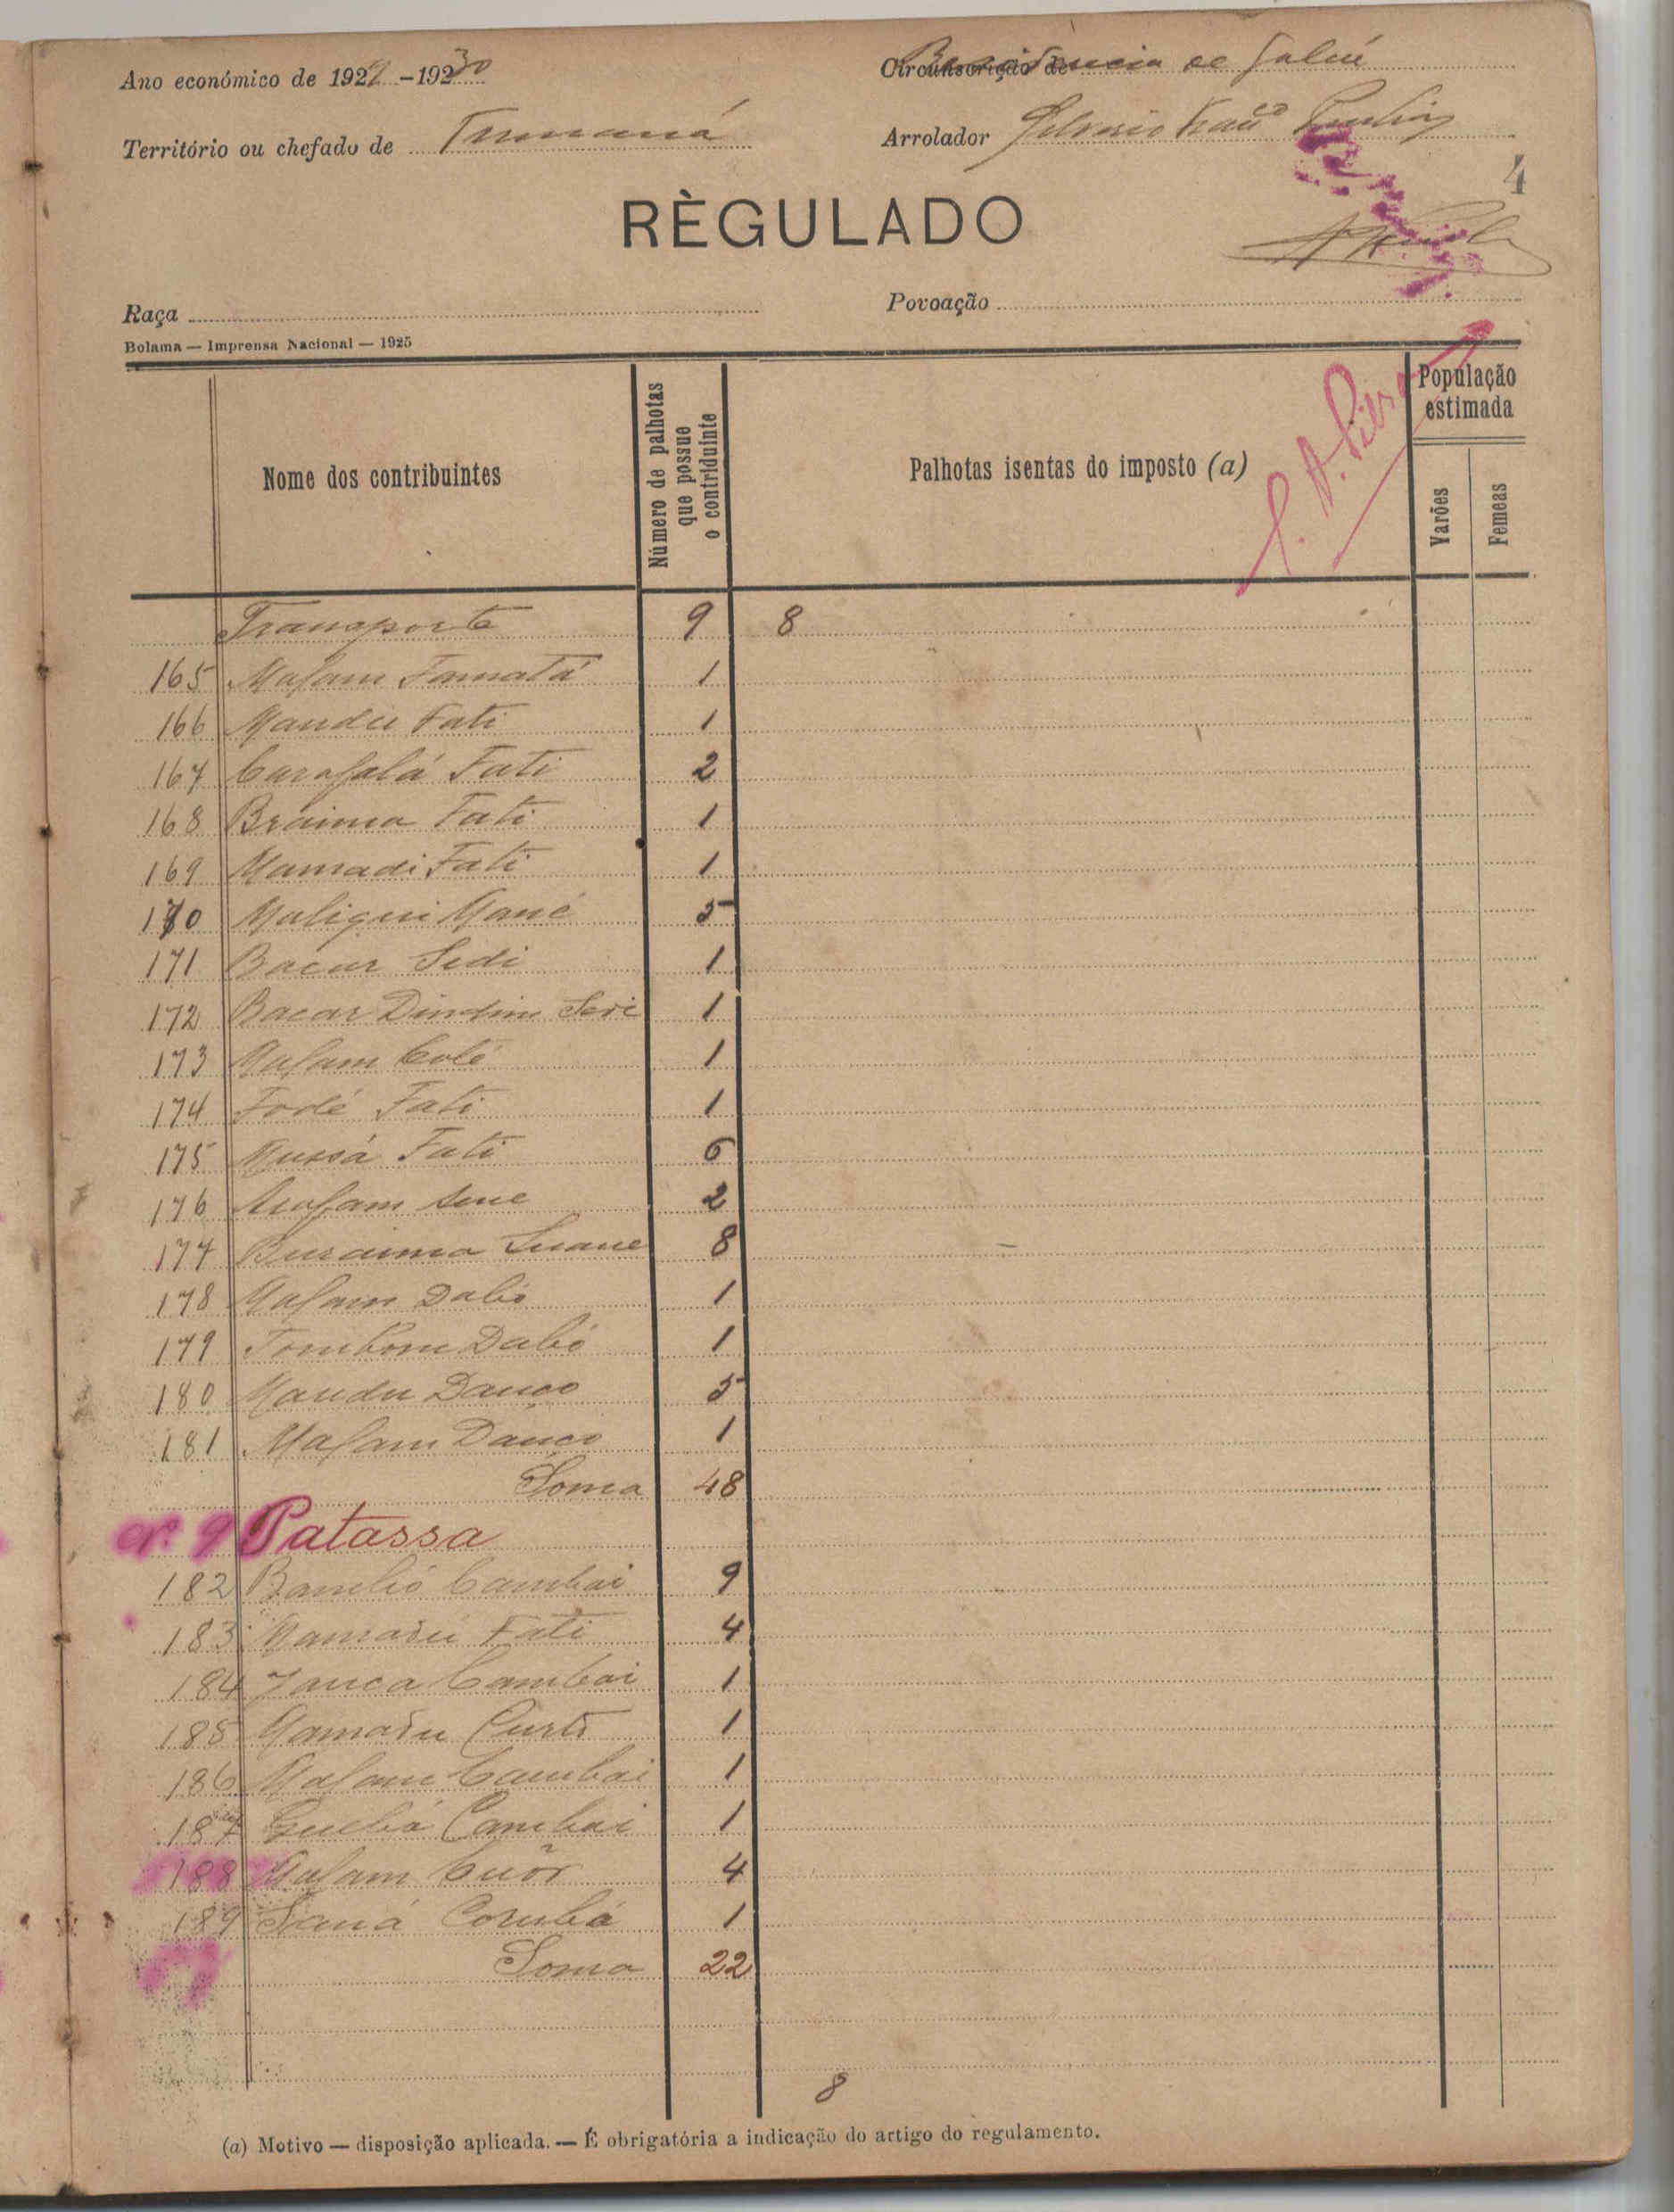 Ano económico de 1929-1930
Circunscrição de
Território ou chefado de
Arrolador
4
RÈGULADO
Raça
Povoação
Bolama — Imprensa Nacional — 1925
Nome dos contribuintes
Número de palhotas que possue o contriduinte
Palhotas isentas do imposto (a)
População estimada
Varões
Femeas
Transporte 9 8
165 Malam Tamatá 1
166 Fati 1
167 Fati 2
168 Braima Fati 1
169 Mamadi Fati 1
170 Maliqui Mané 5
171 Bacar Sedi 1
172 Bacar 1
173 Malam 1
174 Fodé Fati 1
175 Mussá Fati 6
176 Malam 2
177 Buraima Suane 8
178 Malam Dabó 1
179 Dabó 1
180 Mandu Danço 5
181 Malam Danço 1
Soma 48
nº 9 Patassa
182 Cambai 9
183 Mamadú Fati 4
184 Janca Cambai 1
185 Mamadu 1
186 Malam Cambai 1
187 Cambai 1
188 Malam 4
189 Saná Corubá 1
Soma 22
8
(a) Motivo — disposição aplicada. — É obrigatória a indicação do artigo do regulamento.